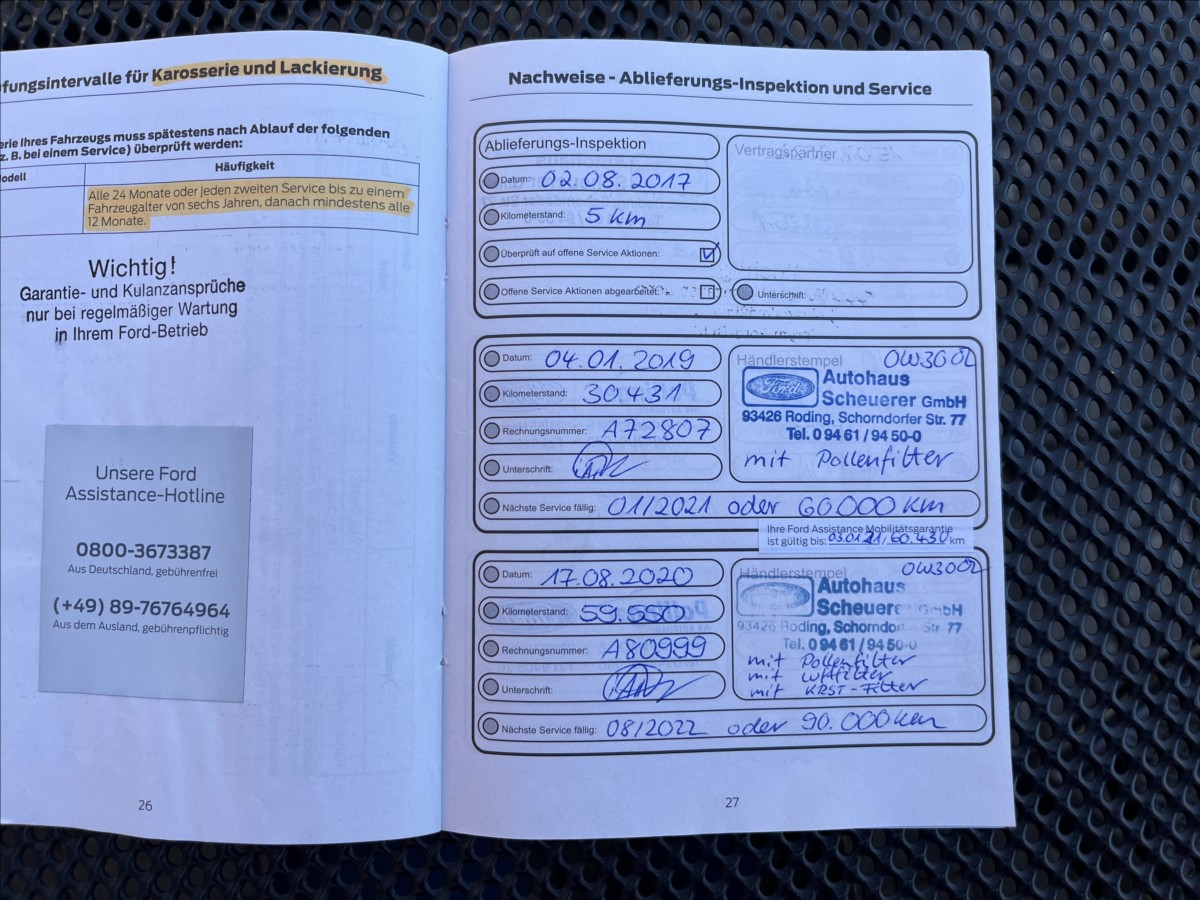 fungsintervalle für Karosserie und Lackierung
erie Ihres Fahrzeugs muss spätestens nach Ablauf der folgenden
z. B. bei einem Service) überprüft werden:
odell
Häufigkeit
Alle 24 Monate oder jeden zweiten Service bis zu einem
Fahrzeugalter von sechs Jahren, danach mindestens alle
12 Monate.
Wichtig!
Garantie- und Kulanzansprüche
nur bei regelmäßiger Wartung
in Ihrem Ford-Betrieb
Unsere Ford
Assistance-Hotline
0800-3673387
Aus Deutschland, gebührenfrei
(+49) 89-76764964
Aus dem Ausland, gebührenpflichtig
26
Nachweise - Ablieferungs-Inspektion und Service
Ablieferungs-Inspektion
Datum: 02.08.2017
Kilometerstand: 5 km
Überprüft auf offene Service Aktionen:
Offene Service Aktionen abgearbeitet:
Vertragspartner
Unterschrift:
Datum: 04.01.2019
Kilometerstand: 30.431
Rechnungsnummer: A72807
Unterschrift:
Händlerstempel OW300L
Ford
Autohaus
Scheuerer GmbH
93426 Roding, Schorndorfer Str. 77
Tel. 0 94 61 / 94 50-0
mit Pollenfilter
Nächste Service fällig: 01/2021 oder 60.000 km
Ihre Ford Assistance Mobilitätsgarantie
ist gültig bis: 03.01.21/60.430 km
Datum: 17.08.2020
Kilometerstand: 59.550
Rechnungsnummer: A80999
Unterschrift:
Händlerstempel OW300L
Autohaus
Scheuerer GmbH
93426 Roding, Schorndor Str 77
Tel. 0 94 61 / 94 50-0
mit Pollenfilter
mit Luftfilter
mit KRST-Filter
Nächste Service fällig: 08/2022 oder 90.000 km
27